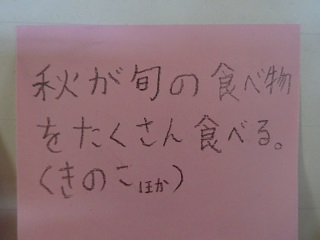 秋が旬の食べ物
をたくさん食べる。
(きのこほか)